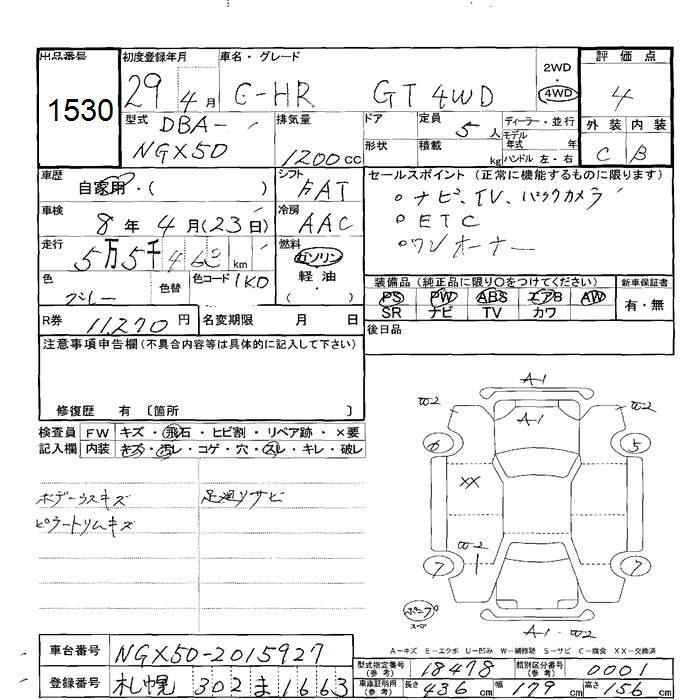 出品番号
1530
初度登録年月
29 4月
車名・グレード
C-HR GT 4WD
2WD
4WD
評価点
4
外装 内装
C B
型式
DBA-
NGX50
排気量
1200cc
ドア
定員 5人
ディーラー・並行
形状
積載 kg
モデル年式 年
ハンドル 左・右
車歴
自家用・( )
シフト
FAT
車検
8年4月(23日)
冷房
AAC
走行
5万5千463km
燃料
ガソリン
軽・油
・
( )
色
グレー
色替
色コード 1K0
R券 11,270円
名変期限 月 日
セールスポイント (正常に機能するものに限ります)
○ナビ、TV、バックカメラ
○ETC
○ワンオーナー
装備品 (純正品に限り○をつけてください)
PS PW ABS エアB AW
SR ナビ TV カワ
新車保証書
有・無
後日品
注意事項申告欄 (不具合内容等は具体的に記入して下さい)
修復歴 有 〔箇所 〕
検査員記入欄
FW キズ・飛石・ヒビ割・リペア跡・×要
内装 キズ・汚レ・コゲ・穴・スレ・キレ・破レ
ボデーウスキズ
ピラートリムキズ
足廻りサビ
A-1
A-1
W-2
W-2
6
5
XX
W-2
1
7
7
スペ
A-1 W-2
A-キズ E-エクボ U-凹み W-補修跡 S-サビ C-腐食 XX-交換済
車台番号 NGX50-2015927
登録番号 札幌 302 ま 1663
型式指定番号(参考) 18478
類別区分番号(参考) 0001
車庫証明用(参考) 長さ 436cm 幅 179cm 高さ 156cm